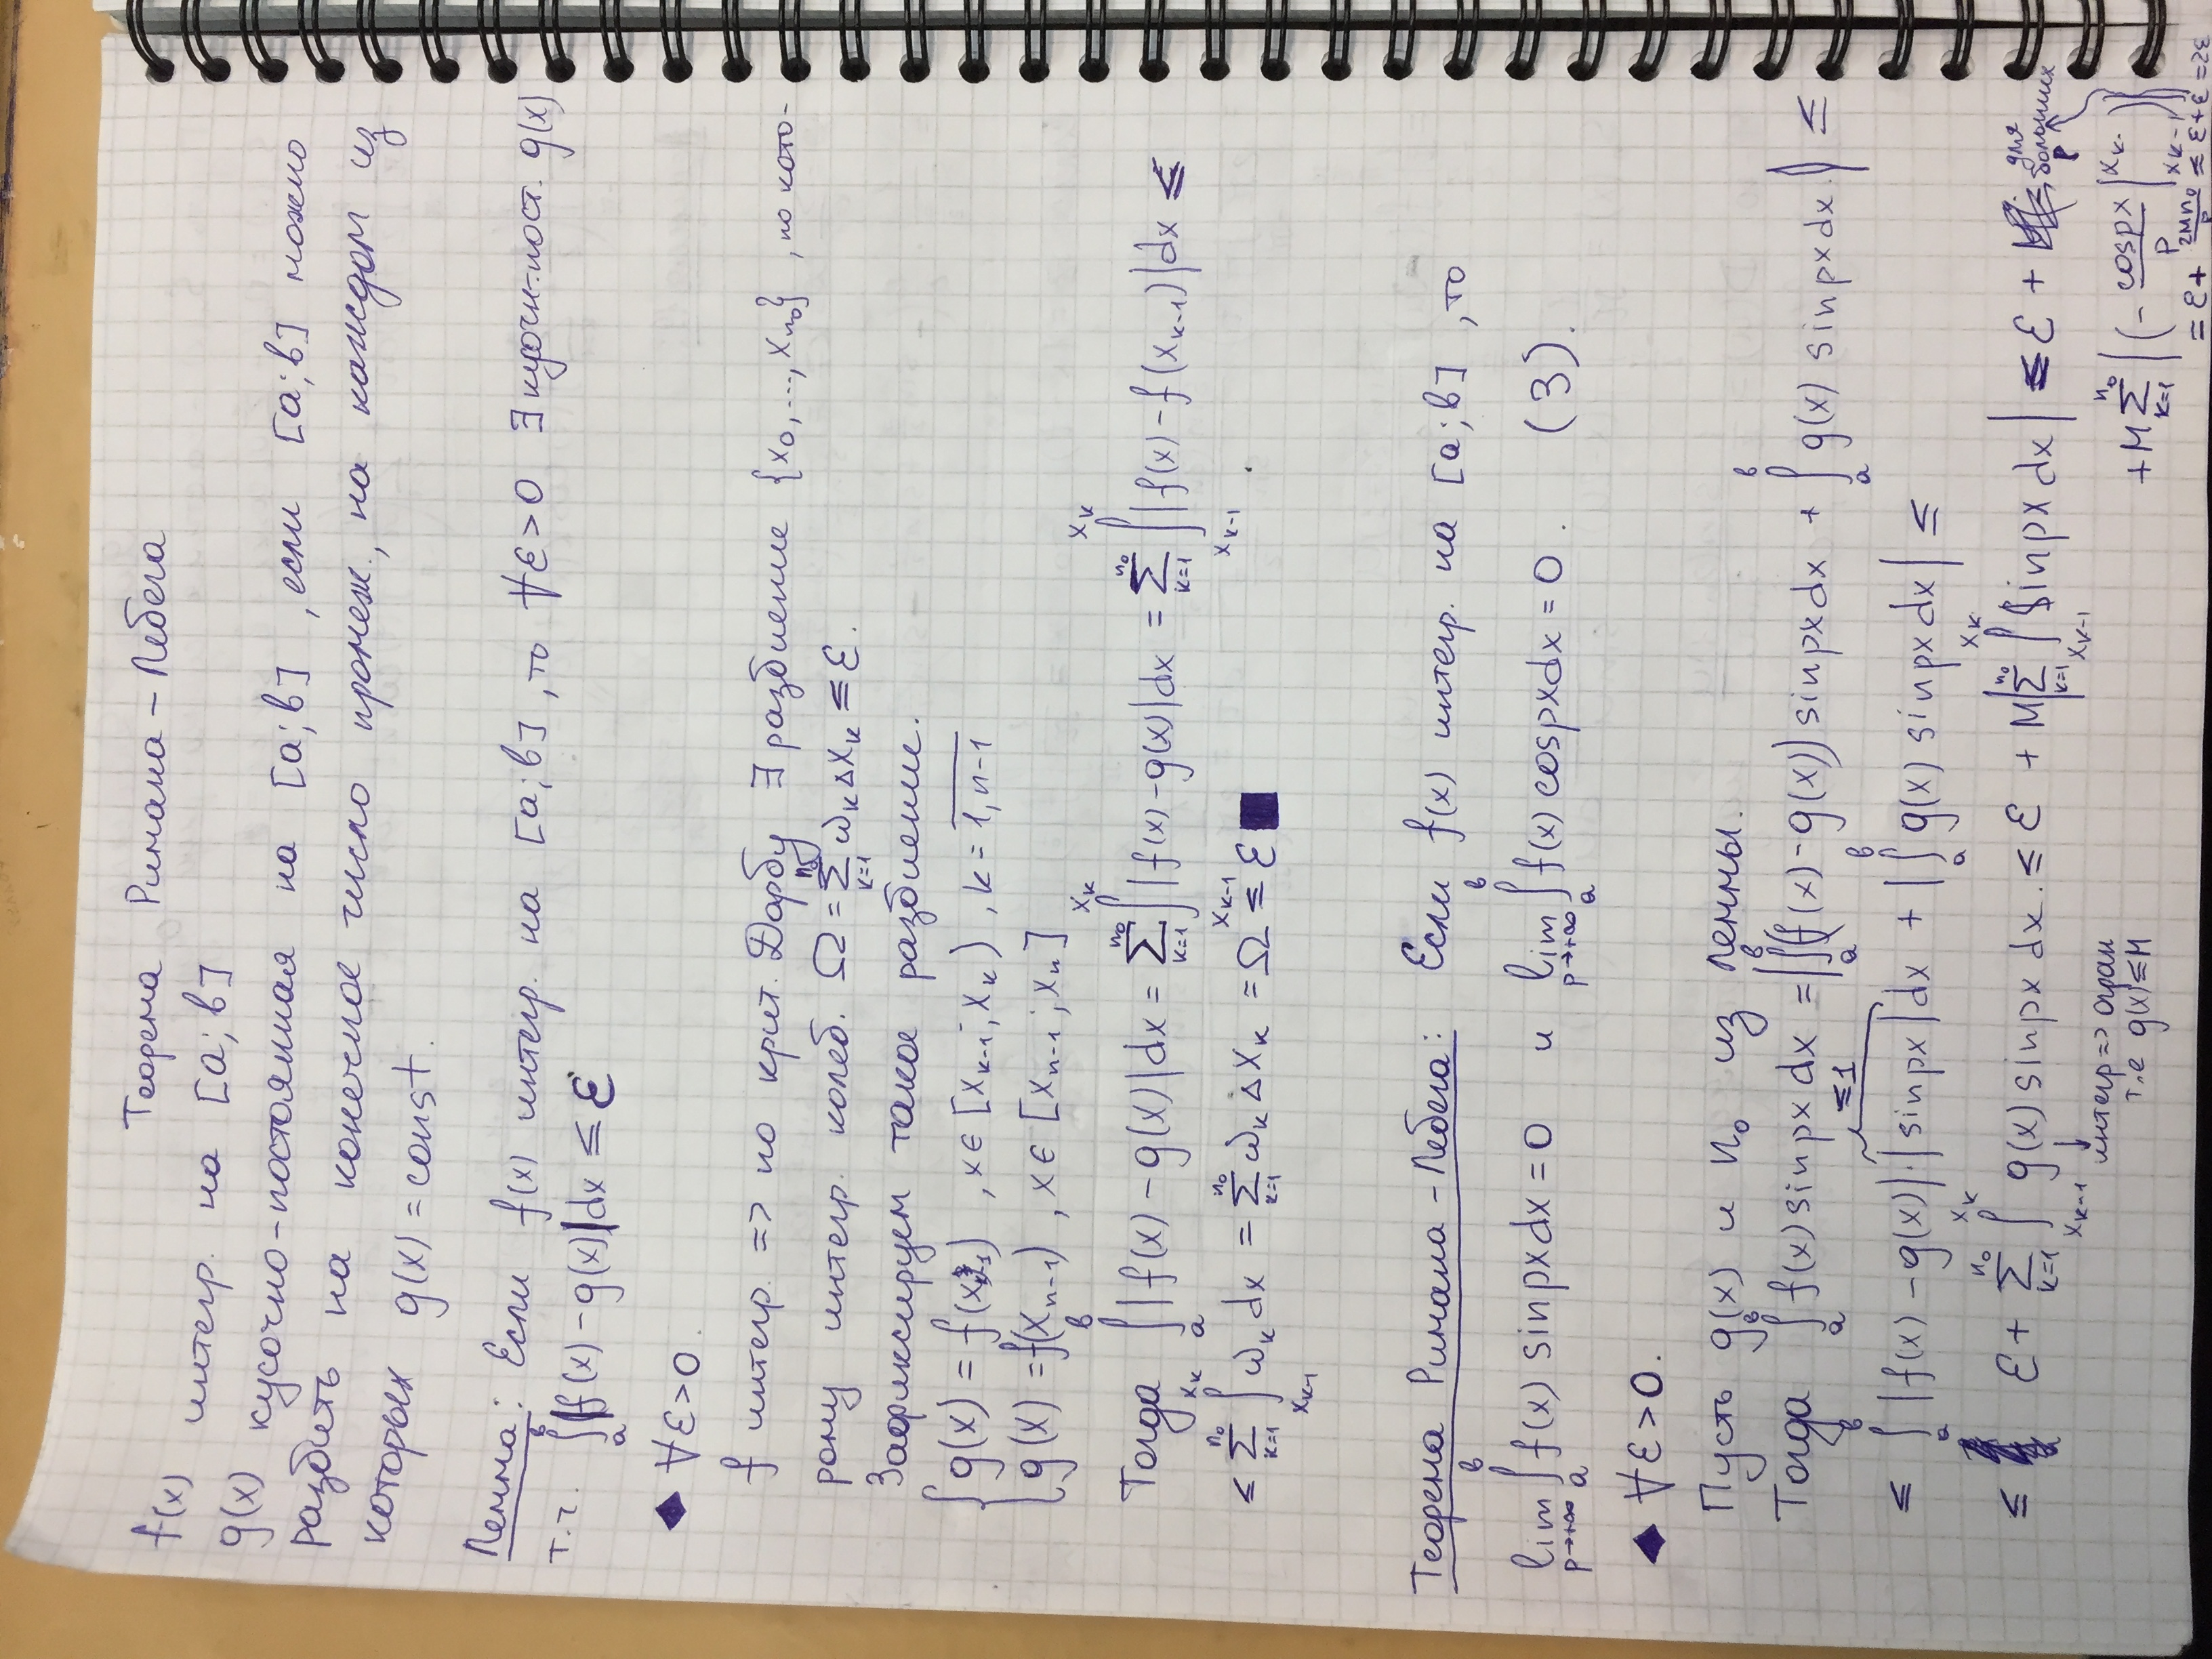 Теорема Римана – Лебега
f(x) интегр. на [a; b]
g(x) кусочно-постоянная на [a; b], если [a; b] можно
разбить на конечное число промеж., на каждом из
которых g(x) = const.
Лемма: Если f(x) интегр. на [a; b], то ∀ε>0 ∃ кусочн.-пост. g(x)
т.ч. ∫_a^b |f(x) – g(x)|dx ≤ ε
◆ ∀ε>0.
f интегр. => по крит. Дарбу ∃ разбиение {x₀, ..., x_{n₀}}, по кото-
рому интегр. колеб. Ω = Σ_{k=1}^{n₀} ω_k Δx_k ≤ ε.
Зафиксируем такое разбиение.
{ g(x) = f(x_{k-1}), x ∈ [x_{k-1}; x_k), k = \overline{1, n-1}
g(x) = f(x_{n-1}), x ∈ [x_{n-1}; x_n]
Тогда ∫_a^b |f(x) – g(x)|dx = Σ_{k=1}^{n₀} ∫_{x_{k-1}}^{x_k} |f(x) – g(x)|dx = Σ_{k=1}^{n₀} ∫_{x_{k-1}}^{x_k} |f(x) – f(x_{k-1})|dx ≤
≤ Σ_{k=1}^{n₀} ∫_{x_{k-1}}^{x_k} ω_k dx = Σ_{k=1}^{n₀} ω_k Δx_k = Ω ≤ ε ■
Теорема Римана – Лебега: Если f(x) интегр. на [a; b], то
lim_{p→+∞} ∫_a^b f(x) sinpxdx = 0 и lim_{p→+∞} ∫_a^b f(x) cospxdx = 0. (3).
◆ ∀ε>0.
Пусть g(x) и n₀ из леммы.
Тогда ∫_a^b f(x) sinpx dx = |∫_a^b (f(x) – g(x)) sinpxdx + ∫_a^b g(x) sinpxdx.| ≤
≤1
≤ ∫_a^b |f(x) – g(x)|·|sinpx|dx + |∫_a^b g(x) sinpxdx| ≤
≤ ε + Σ_{k=1}^{n₀} ∫_{x_{k-1}}^{x_k} g(x) sinpx dx. ≤ ε + M|Σ_{k=1}^{n₀} ∫_{x_{k-1}}^{x_k} sinpx dx| ≤ ε +
для
больших
p
интегр => огран
т.е g(x) ≤ M
+ M Σ_{k=1}^{n₀} |(– cospx/p |_{x_{k-1}}^{x_k})|
= ε + 2Mn₀/p ≤ ε + ε = 2ε